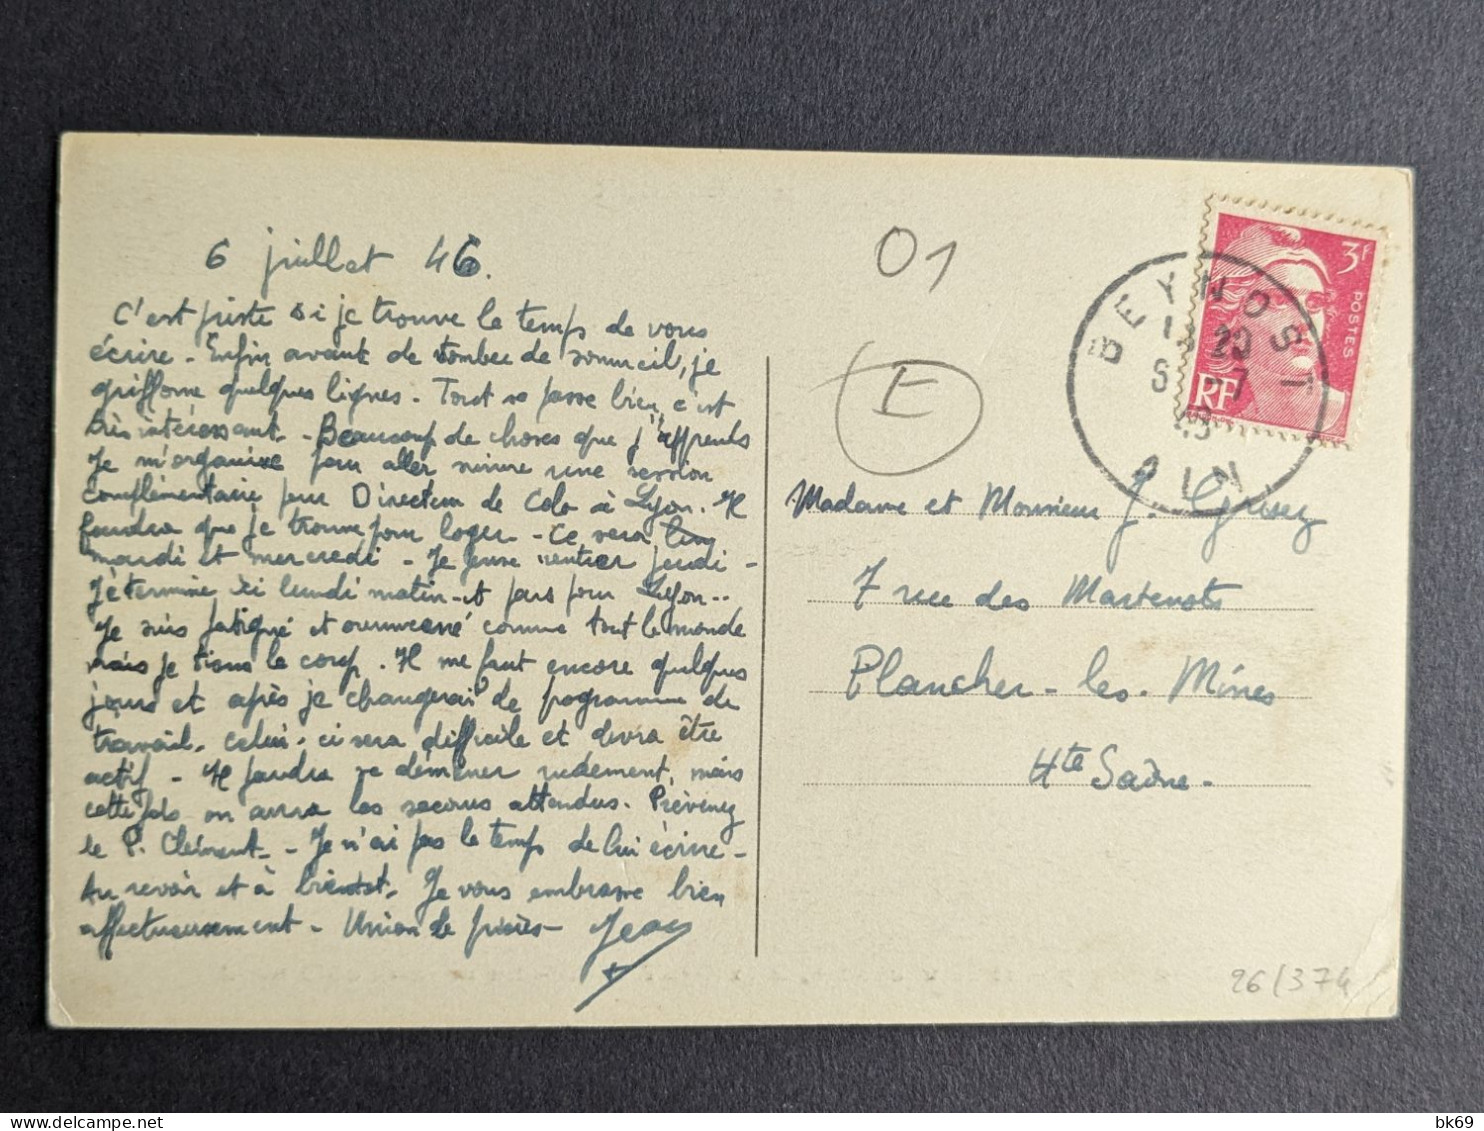 6 juillet 46.
C'est juste si je trouve le temps de vous
écrire - Enfin avant de tomber de sommeil, je
griffonne quelques lignes. Tout se passe bien, c'est
très intéressant. - Beaucoup de choses que j'apprends
Je m'organise pour aller suivre une session
complémentaire pour Directeur de Colo à Lyon. Il
faudra que je trouve pour loger - Ce sera
mardi et mercredi - Je pense rentrer jeudi -
Je termine ici lundi matin et pars pour Lyon..
Je suis fatigué et comme tout le monde
mais je tiens le coup. Il me faut encore quelques
jours et après je changerai de programme de
travail. Celui-ci sera difficile et devra être
actif - Il faudra se démener rudement, mais
cette fois on aura les secours attendus. Prévenez
le P. Clément - Je n'ai pas le temps de lui écrire -
Au revoir et à bientôt. Je vous embrasse bien
affectueusement - Union de prières - Jean
01
E
3F
POSTES
RF
BEYNOST
20
7
AIN
Madame et Monsieur J.
7 rue des Martenots
Plancher-les-Mines
Hte Saône -
26/374
bk69